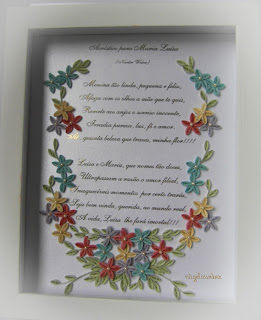 Acróstico para Maria Luísa
Menina tão linda, pequena e feliz,
Afaga com os olhos a mão que te quis,
Remete aos anjos o sorriso inocente,
Irradia pureza, luz, fé e amor.
quanta beleza que trazes, minha flor!!!!
Luísa e Maria, que nomes tão doces,
Ultrapassam a razão o amor filial,
Inesquecíveis momentos por certo trarás,
Seja bem vinda, querida, ao mundo real,
A vida, Luísa the fará imortal!!!!